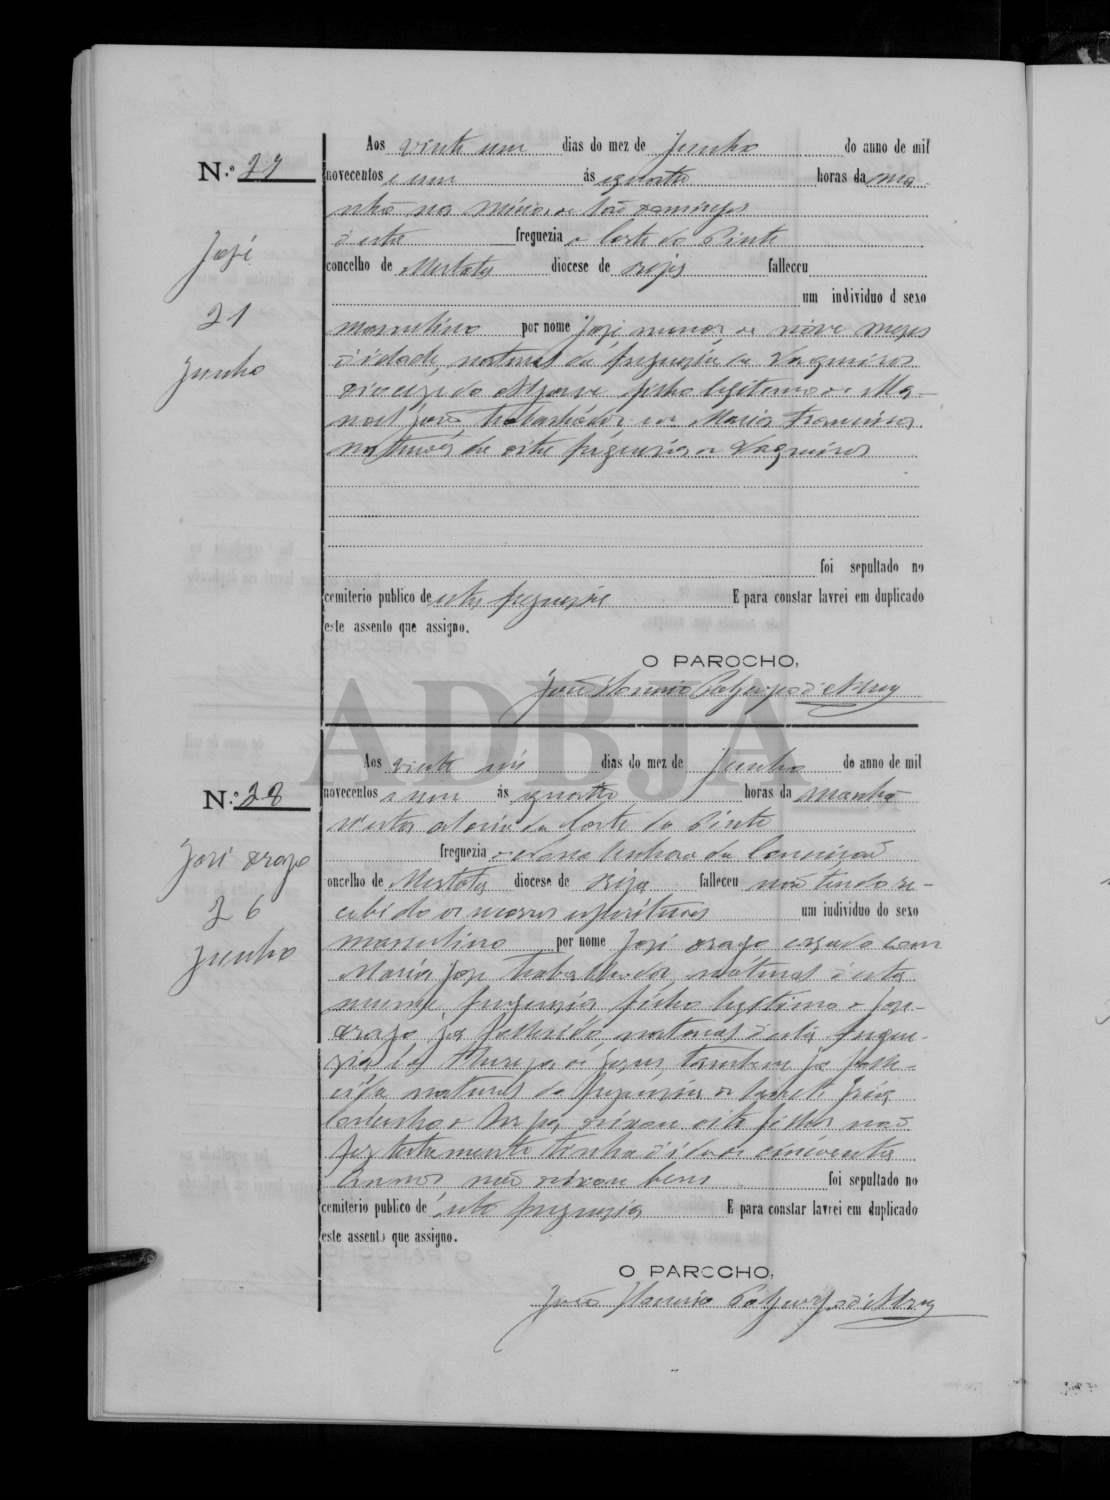 N.º 27
José
21
Junho
Aos vinte um dias do mez de Junho do anno de mil
novecentos e um ás quatro horas da ma-
nhã na Mina de São Domingos
d'esta freguezia de Corte do Pinto
concelho de Mertola diocese de Beja falleceu
um individuo d sexo
masculino por nome José menor de nove mezes
d'idade, natural da freguezia de Vaqueiros
diocese do Algarve filho legitimo de Ma-
noel João trabalhador, e de Maria Francisca
naturaes da dita freguezia de Vaqueiros
foi sepultado no
cemiterio publico de esta freguezia E para constar lavrei em duplicado
este assento que assigno.
O PAROCHO,
João
ADBJA
N.º 28
José Drago
26
Junho
Aos vinte seis dias do mez de Junho do anno de mil
novecentos e um ás quatro horas da manhã
n'esta aldeia da Corte do Pinto
freguezia de Nossa Senhora da Conceição
concelho de Mertola diocese de Beja falleceu não tendo re-
cebido os
um individuo do sexo
masculino por nome José Drago casado com
Maria José trabalhador, natural d'esta
mesma freguezia filho legitimo de José
Drago já fallecido natural d'esta fregue-
zia e de Thereza de Jesus, tambem já falle-
cida natural da freguezia de
deixou oito filhos não
fez testamento tinha d'idade cincoenta
annos não deixou bens foi sepultado no
cemiterio publico de esta freguezia E para constar lavrei em duplicado
este assento que assigno.
O PAROCHO,
João